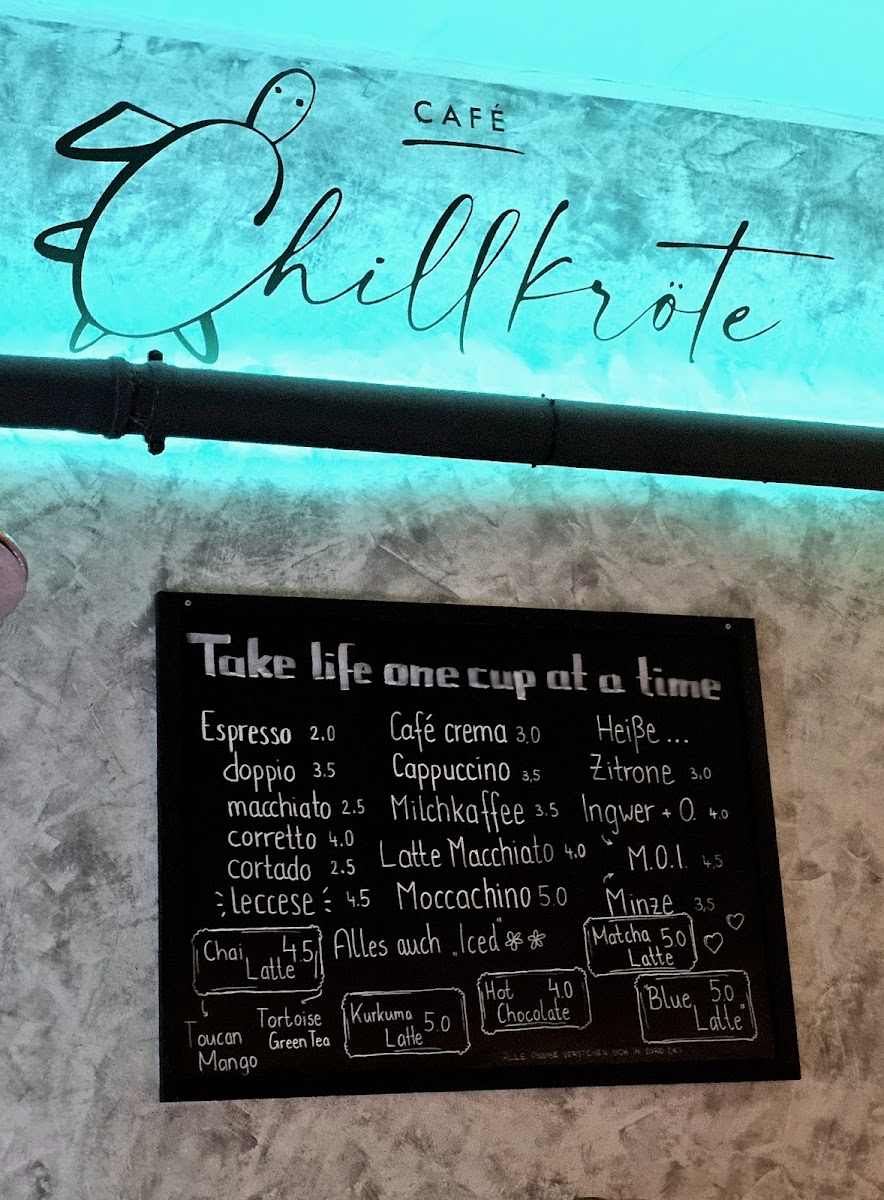 CAFÉ
Chillkröte
Take life one cup at a time
Espresso 2.0
doppio 3.5
macchiato 2.5
corretto 4.0
cortado 2.5
leccese 4.5
Café crema 3,0
Cappuccino 3,5
Milchkaffee 3.5
Latte Macchiato 4.0
Moccachino 5.0
Alles auch „Iced"
Heiße ...
Zitrone 3,0
Ingwer + O. 4.0
M.O.I. 4,5
Minze 3,5
Chai 4.5
Latte
Toucan
Mango
Tortoise
Green Tea
Kurkuma 5.0
Latte
Hot 4.0
Chocolate
Matcha 5.0
Latte
"Blue 5.0
Latte"
ALLE PREISE VERSTEHEN SICH IN EURO (€)